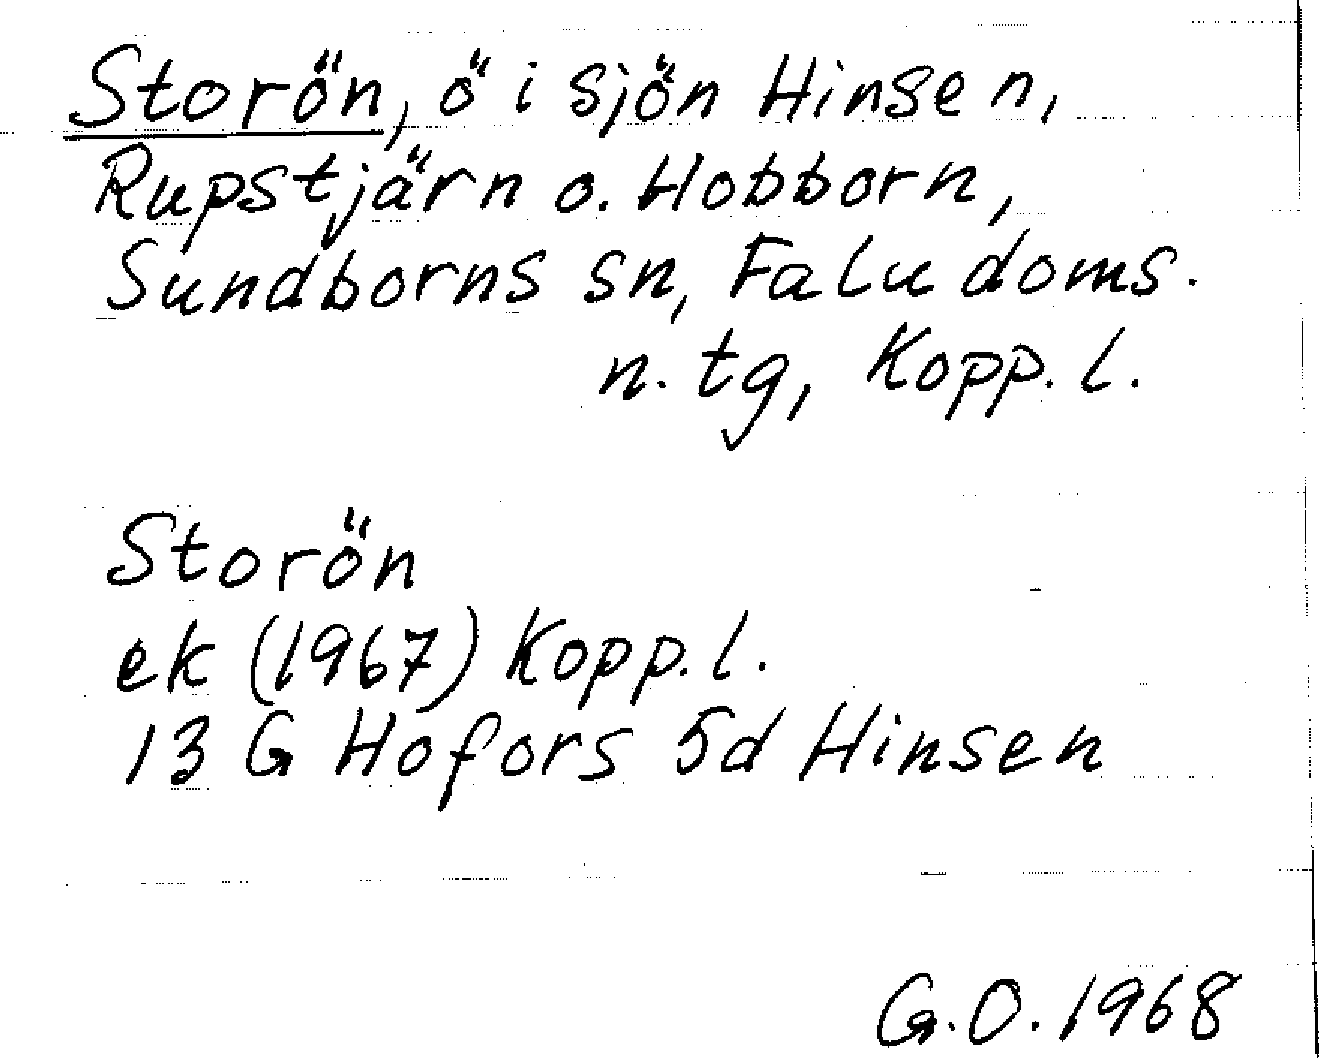 Storön, ö i sjön Hinsen,
Rupstjärn o. Hobborn,
Sundborns sn, Falu doms.
n. tg, Kopp. l.
Storön
ek (1967) Kopp. l.
13 G Hofors 5d Hinsen
G.O. 1968